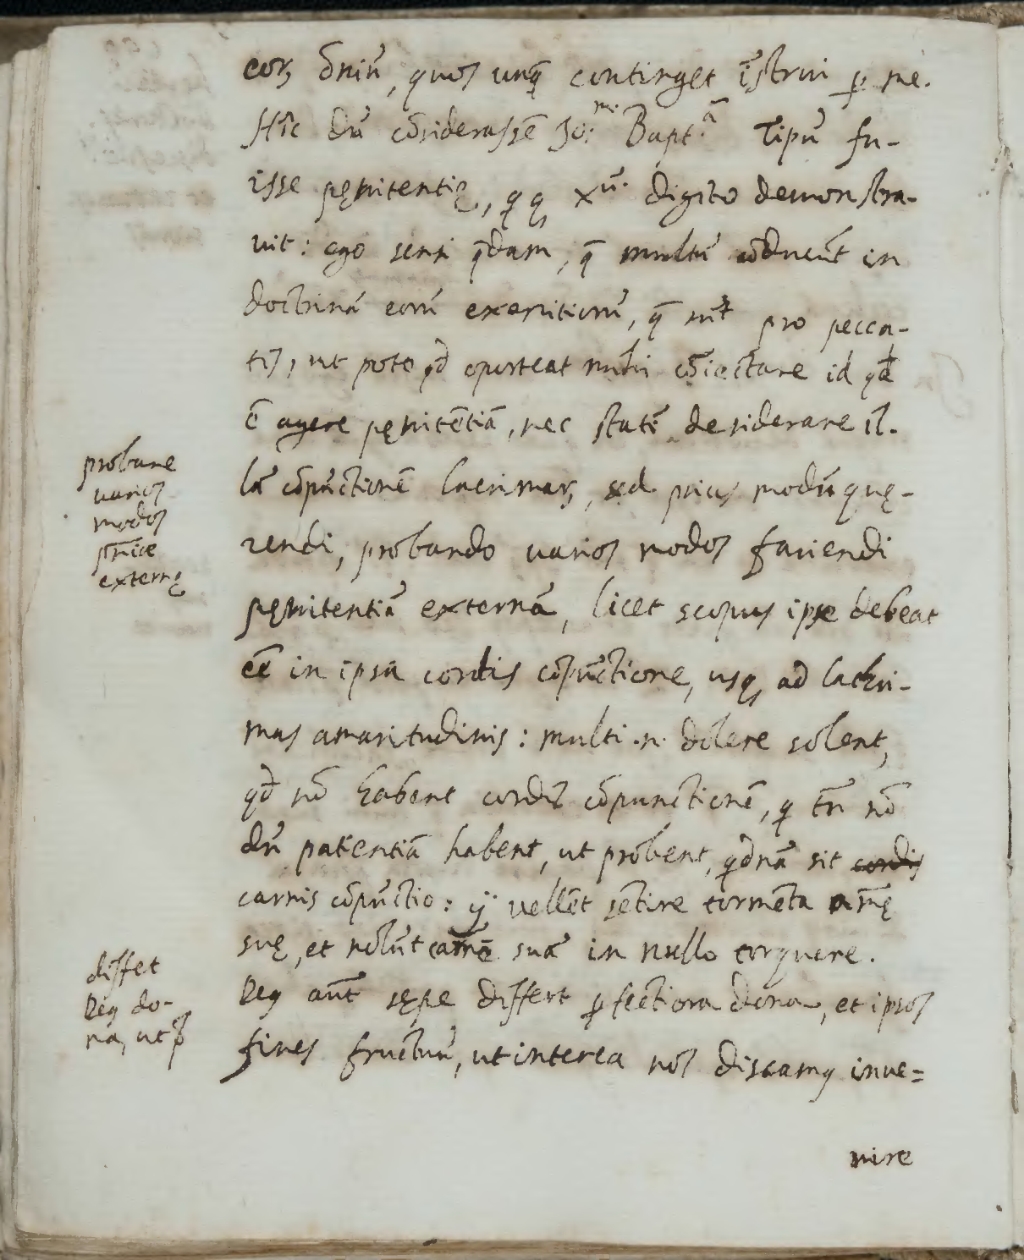 eorꝫ õniũ, quos unq̃ continget ĩstrui ꝑ me.
Hĩc dũ cõsiderassẽ Jo:ⁿᵉᵐ Bapt.ᵃ̃ Tipũ fu-
isse pęnitentię, q̨ xũ. digito demonstra-
vit: ego sensi q̃dam, q̃ multũ cõducũt in
doctrinã eorũ exercitiorũ, q̃ sũt pro pecca-
tis, ut poto qđ oporteat mihi cõiectare id qđ
ẽ agere pęnitẽtiã, nec statĩ desiderare il-
lã cõpũctionẽ lacrimarꝫ, sed prius modũ quę-
rendi, probando varios modos faciendi
pęnitentiã externã, licet scopus ipse debeat
eẽ in ipsa cordis cõpũctione, usqꝫ ad lachri-
mas amaritudinis: multi .n. dolere solent,
qđ nõ habent cordis cõpunctionẽ, q tñ nõ
dũ patientiã habent, ut probent, qdnã sit cordis
carnis cõpũctio: ij vellẽt sẽtire tormẽta aĩę
suę, et nolũt carnẽ suã in nullo torquere.
Deꝰ aũt sępe differt ꝑfectiora dona, et ipsos
fines fructuũ, ut interea nos discamꝰ inve=
nire
probare
varios
modos
pñiẽ
externę
differt
Deꝰ do-
na, ut p̃